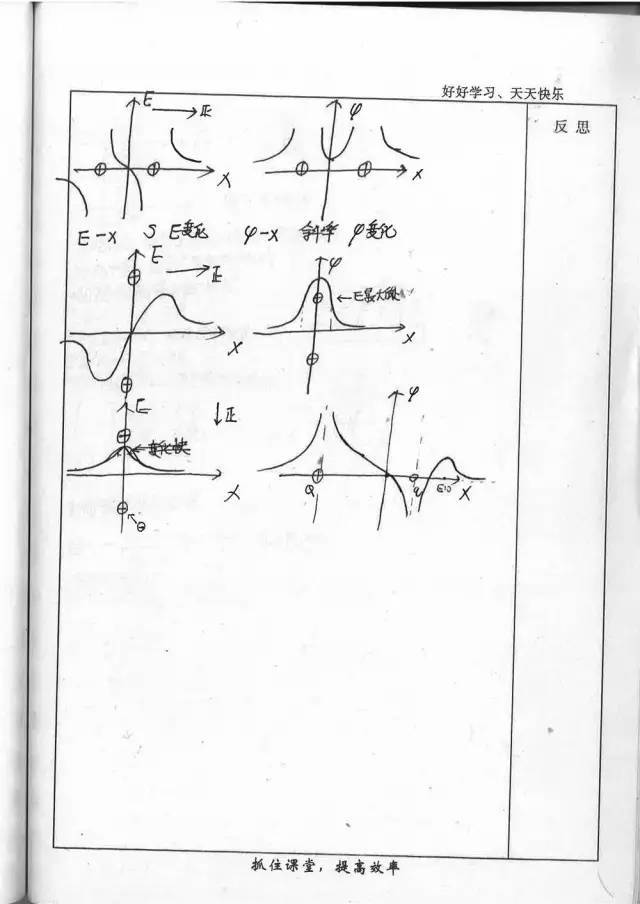 好好学习、天天快乐
反 思
E
正
φ
X
x
E-X S E变化 φ-x 斜率 φ变化
E
正
φ
E最大
X
x
E
正
φ
变化快
X
Q
q
E=0
X
Q
抓住课堂，提高效率